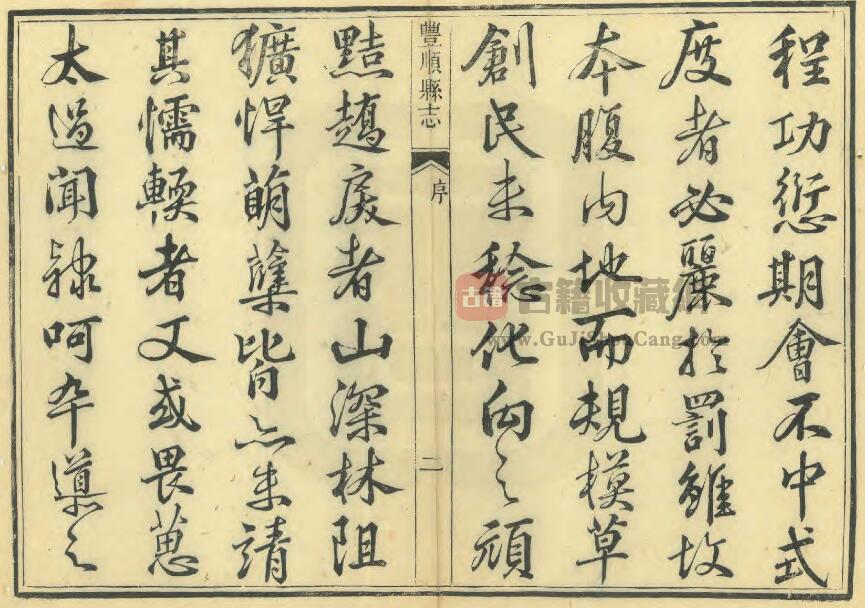 程功愆期會不中式
度者必麗於罰雖故
本腹內地而規模草
創民未稔化向之頑
豐順縣志
序
二
黠趫處者山深林阻
獷悍萌櫱皆亦未靖
其懦輭者又或畏葸
太過聞隸呵卒導之
古籍
古籍收藏网
www.GuJiShouCang.com